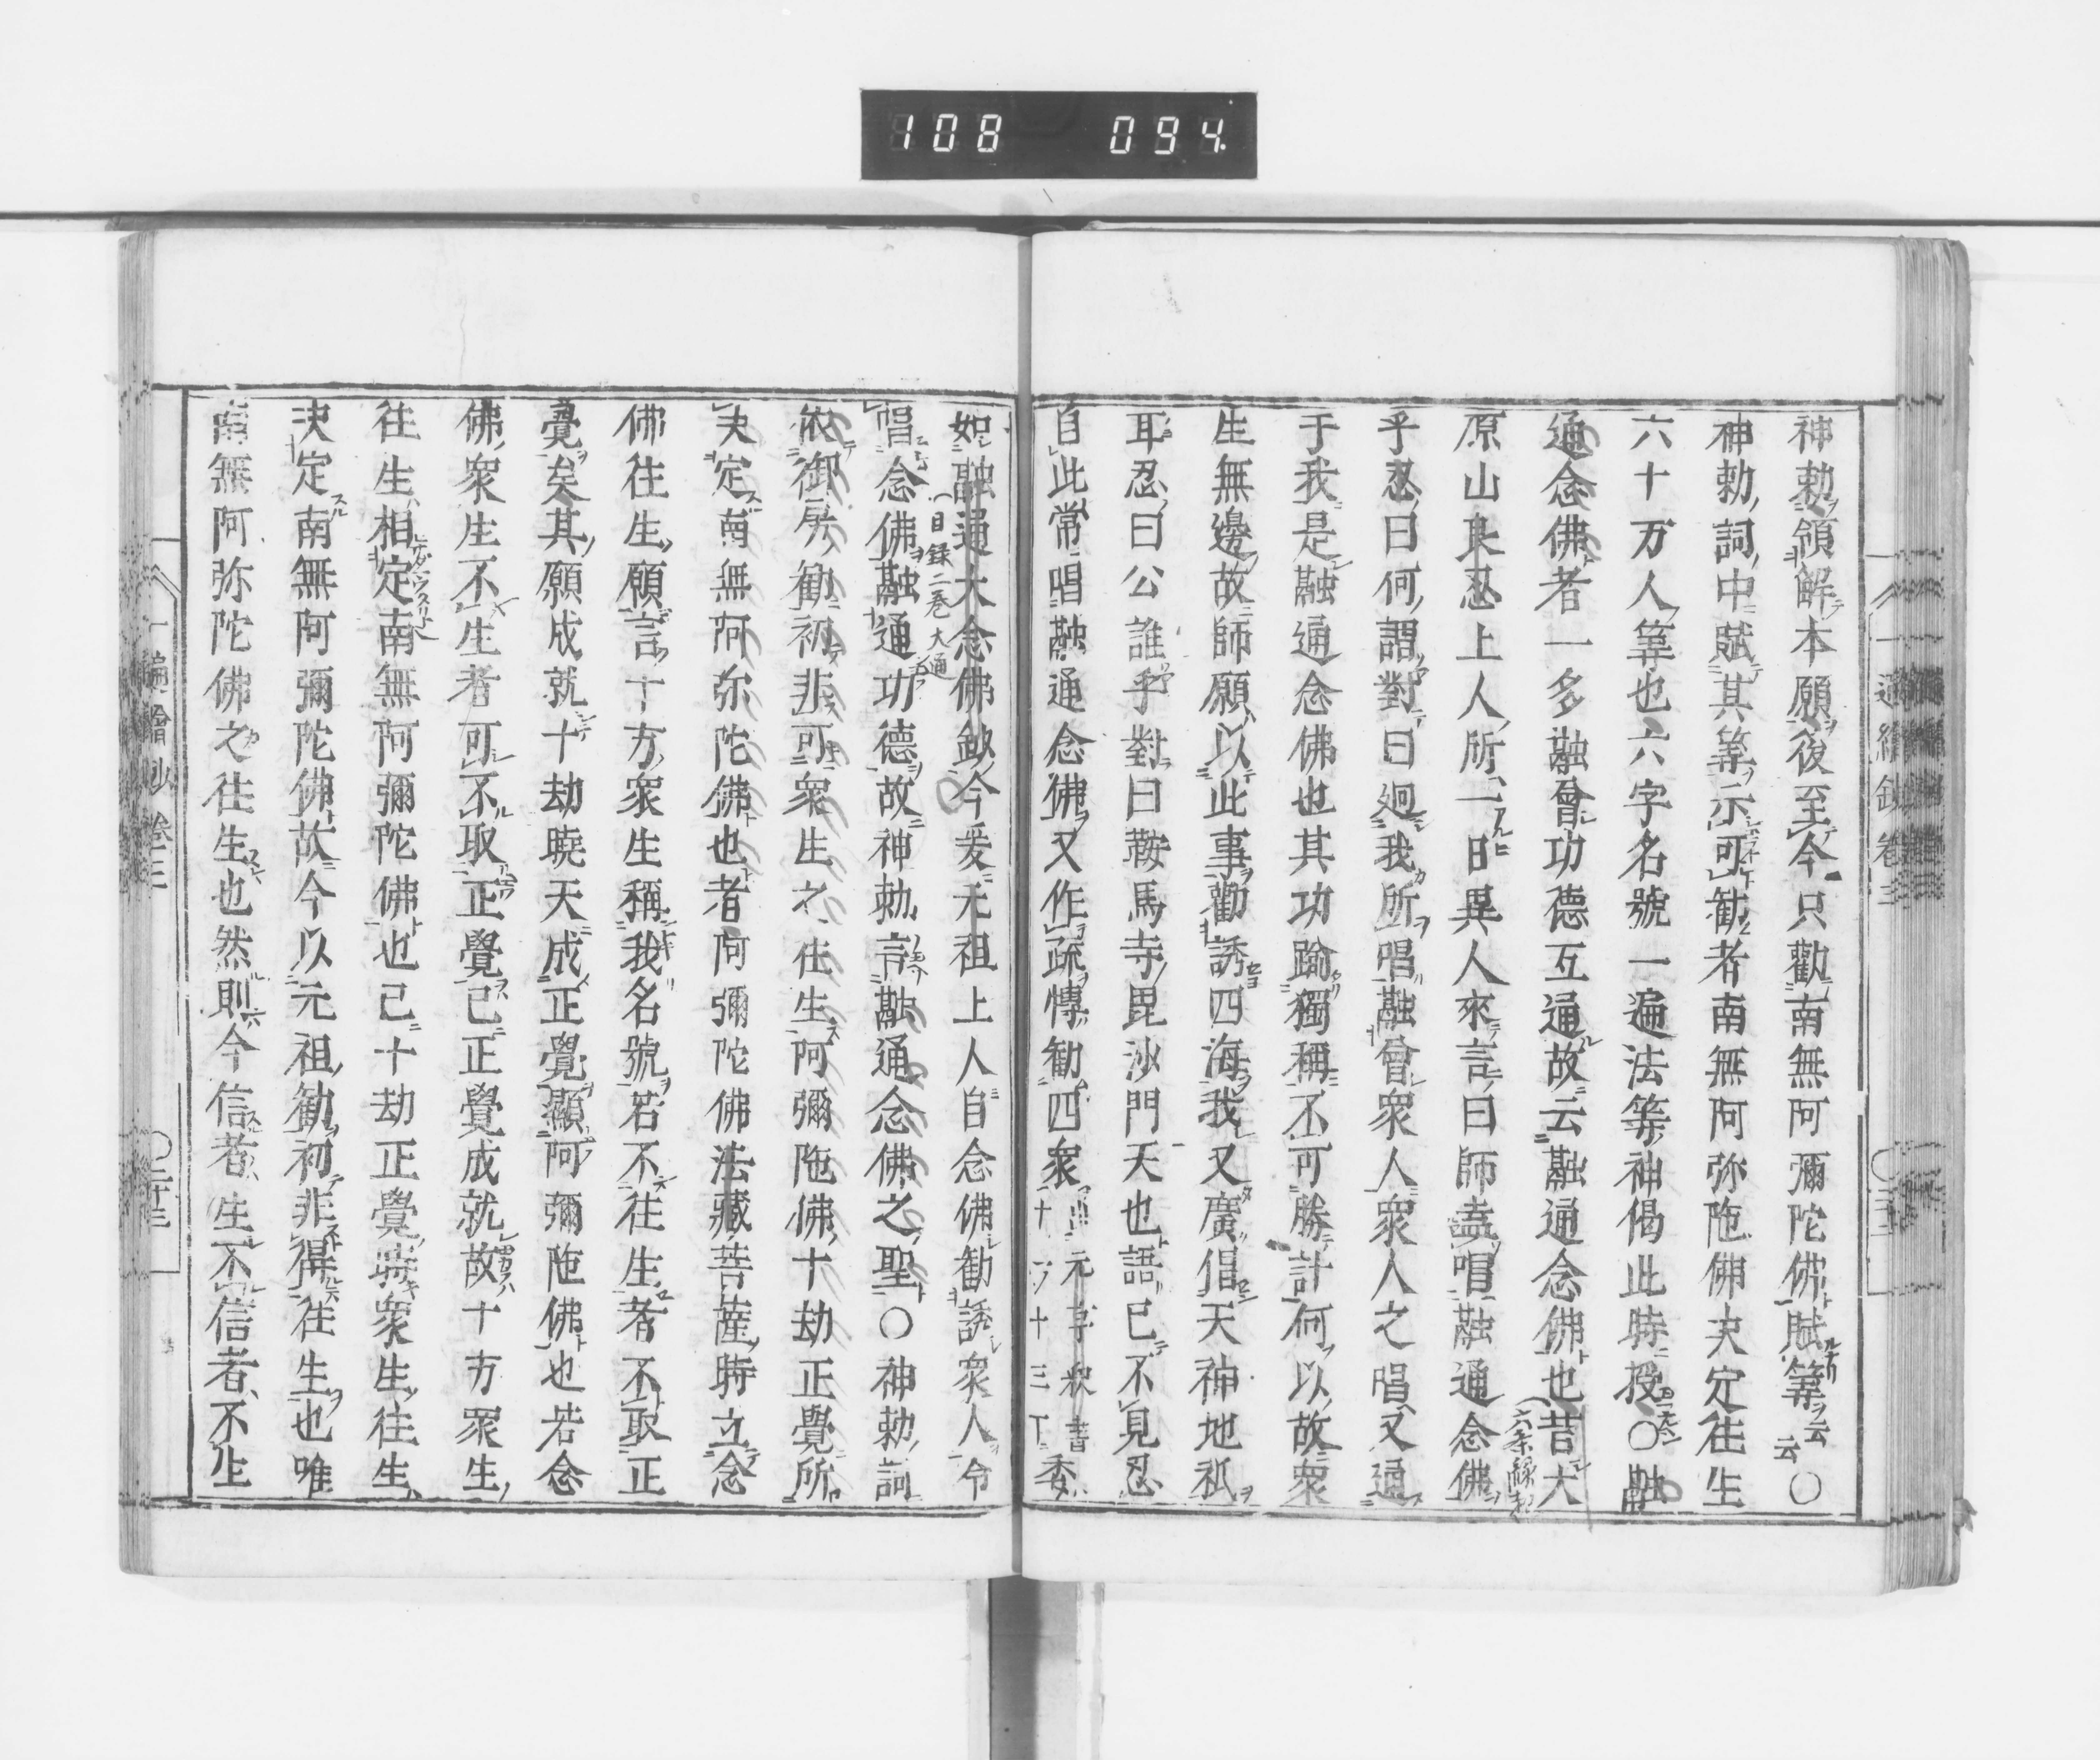 108 094
神勅領解本願後至今只勸南無阿彌陀佛賦筭云云〇
神勅詞中賦其筭示可勧者南無阿弥陁佛决定往生
六十万人筭也六字名號一遍法等神偈此時授〇融
通念佛者一多融會功德互通故云融通念佛也昔大
原山良忍上人所一日異人來言曰師盍唱融通念佛
乎忍曰何謂對曰迴我所唱融會衆人衆人之唱又通
于我是融通念佛也其功踰獨稱不可勝計何以故衆
生無邊故師願以此事勸誘四海我又廣倡天神地祇
耳忍曰公誰乎對曰鞍馬寺毘沙門天也語已不見忍
自此常唱融通念佛又作疏慱勧四衆 元亨釈書 十一ノ十三丁 委
如融通大念佛歟今爰元祖上人自念佛勧誘衆人令
唱念佛融通功德故神勅言融通念佛之聖〇神勅詞
日録二巻大通
依御房勧初非可衆生之往生阿彌陁佛十劫正覺所
决定南無阿弥陀佛也者阿彌陀佛法藏菩薩時立念
佛往生願言十方衆生稱我名號若不往生者不取正
覺矣其願成就十劫曉天成正覺顯阿彌陁佛也若念
佛衆生不生者可不取正覺已正覺成就故十方衆生
往生相定南無阿彌陀佛也已十劫正覺時衆生往生
决定南無阿彌陀佛故今以元祖勧初非得往生也唯
南無阿弥陀佛之往生也然則今信者生不信者不生
一遍繪鈔卷三 〇二十三